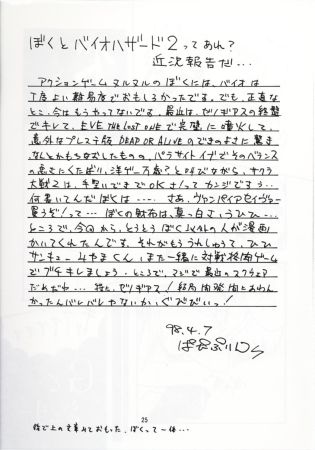 ぼくとバイオハザード2ってあれ?
近況報告だ...
アクションゲームヌルヌルのぼくには、バイオは
丁度よい難易度でおもしろかったです。でも、正直な
とこ、今はもうやってないです。最近は、ゼノギアスの終盤
でキレて、EVE THE LOST ONEで完璧に噴火して、
意外なプレステ版DEAD OR ALIVEのできのよさに驚き、
なんとかもちなおしたものの、パラサイトイヴでそのバランス
の高さにくたばり、洋ゲー万歳?と叫びながら、サクラ
大戦2は、手堅いできでOKさ!ってカンジですぅ..
何書いてんだぼくは…… さあ、ヴァンパイアセイヴァー
買うぞ!って… ぼくの財布は、真っ白さ、うひひ…
ところで、今回から、とうとうぼく以外の人が漫画
かいてくれたんです。それがもううれしゅうて、ひひ
サンキューみやまくん、また一緒に対戦格闘ゲーム
でブチキレましょう。ところで、マジで最近のスクウェア
だれだわ… 特に、ゼノギアス!結局
かったんバレバレやないか、ぐびびぃっ!
98.4.7
25
後で上の文章みておもった、ぼくって一体...